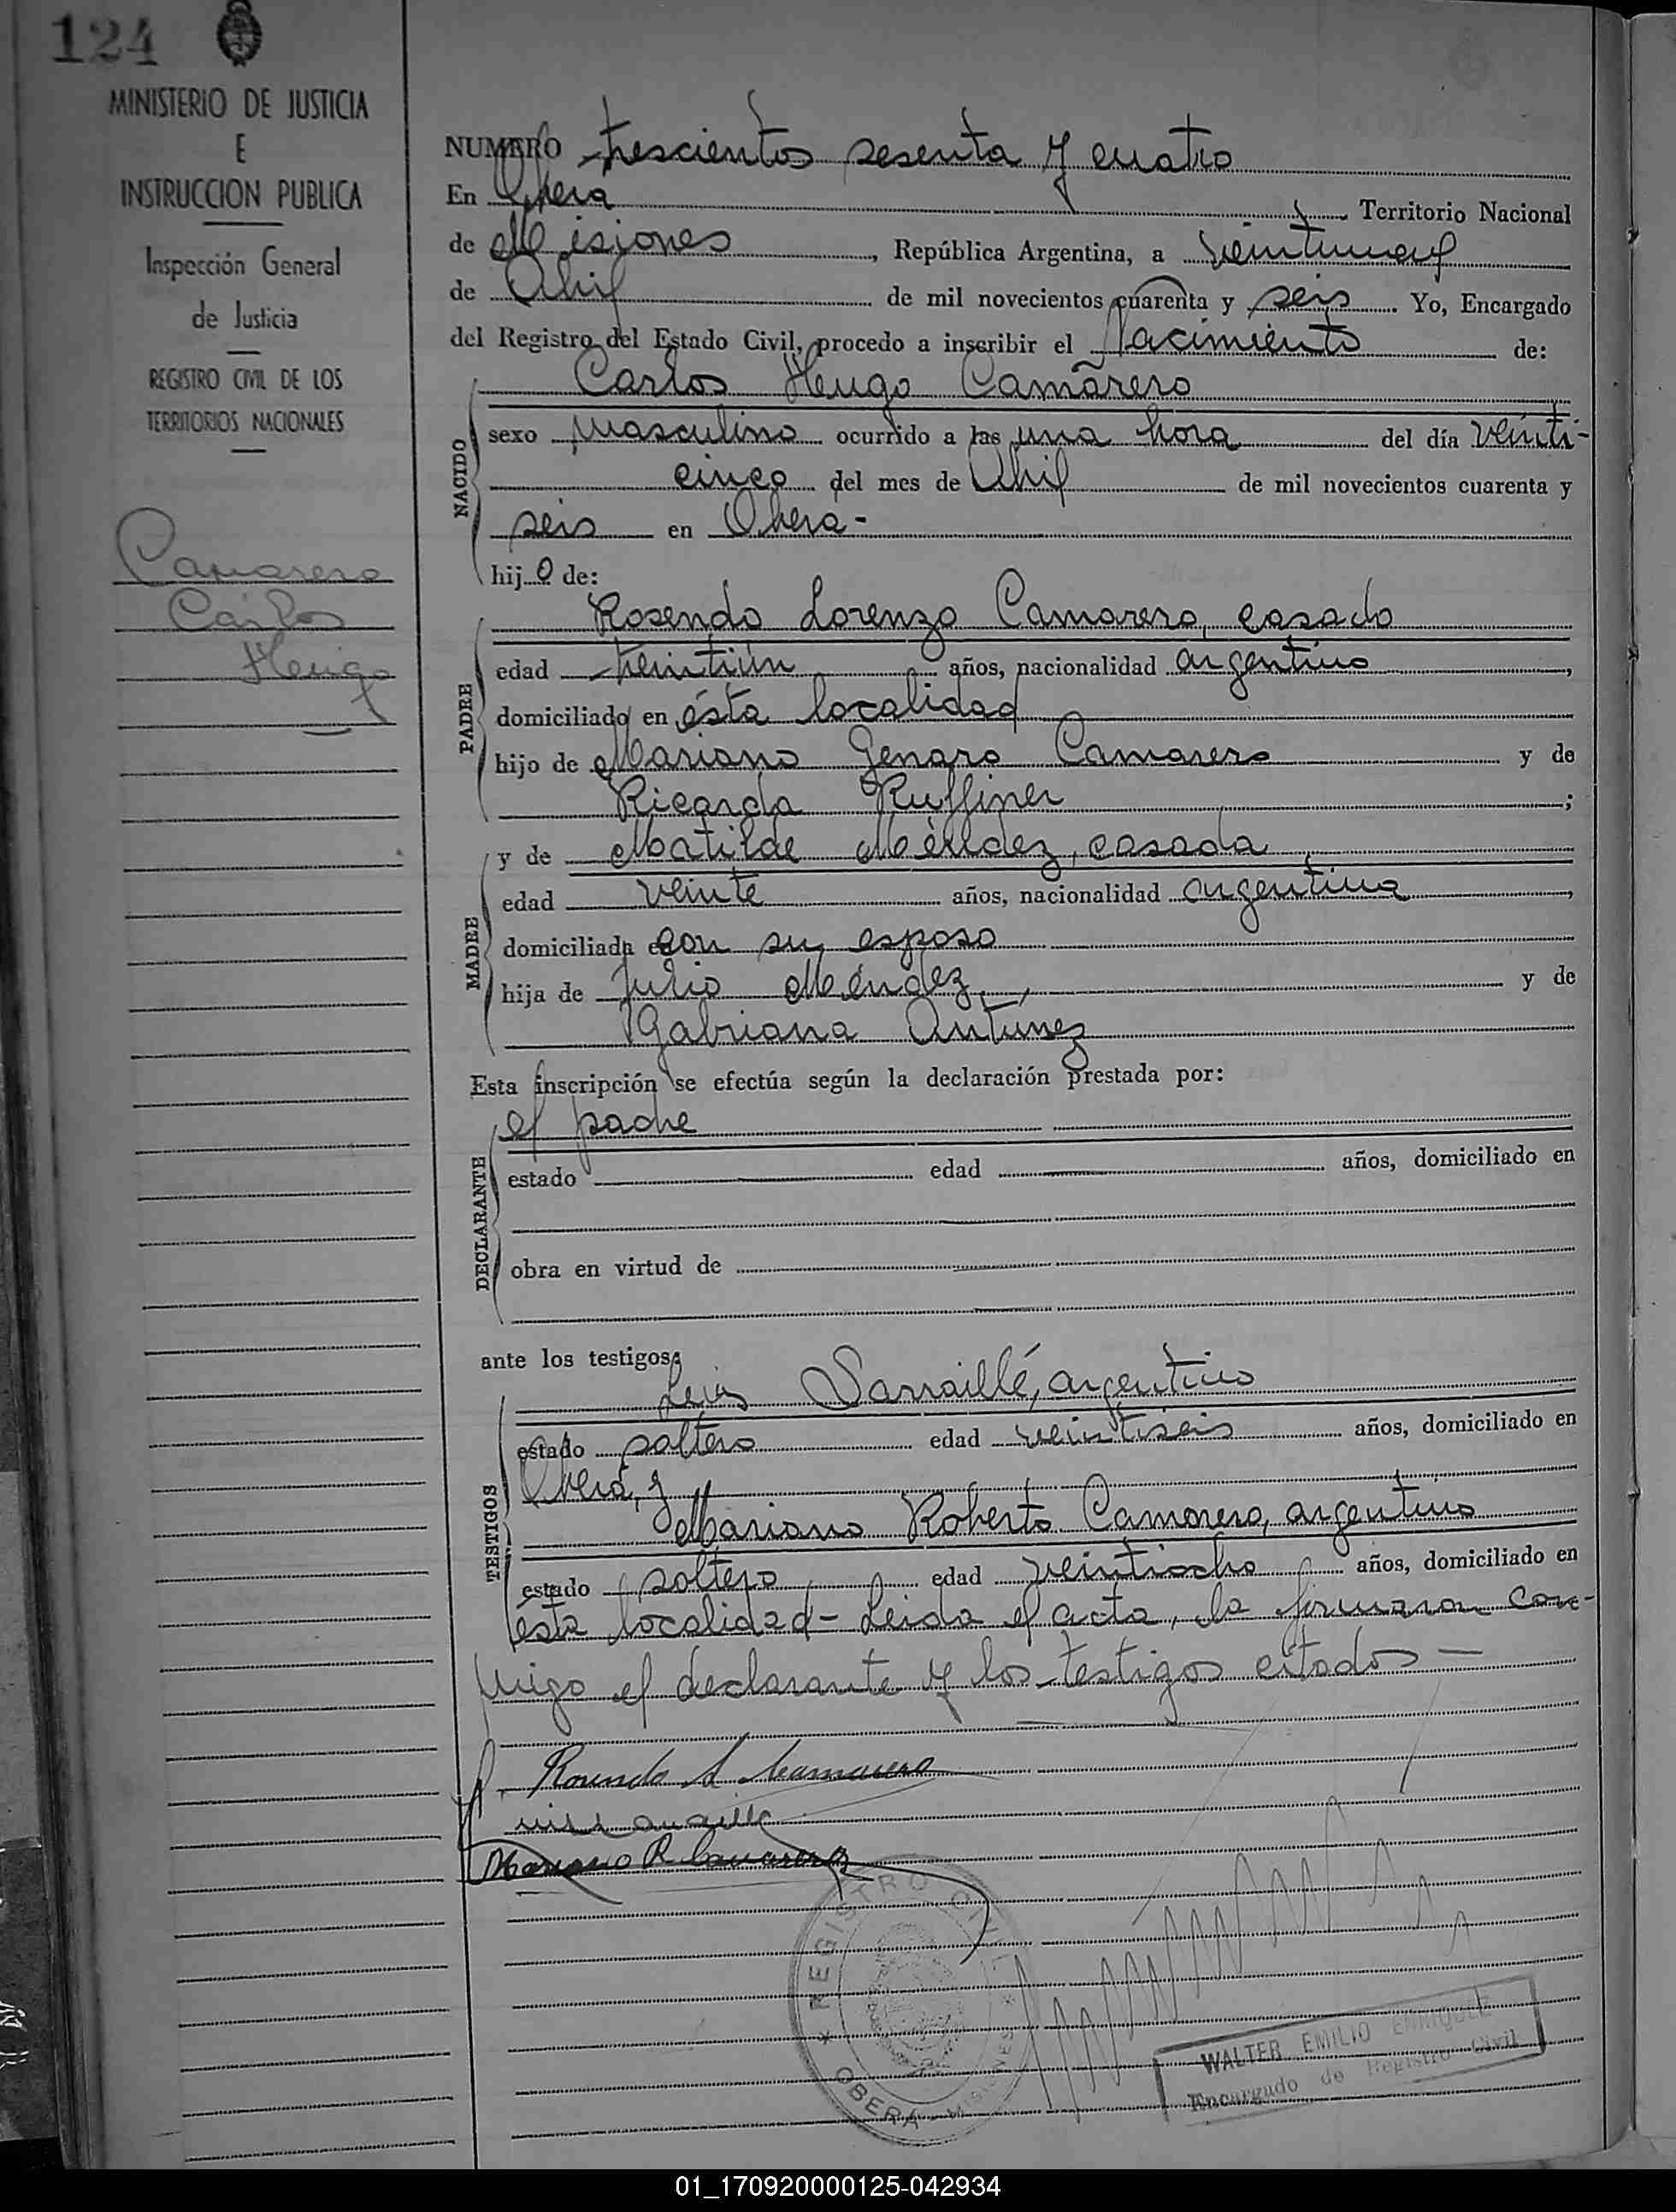 124
MINISTERIO DE JUSTICIA
E
INSTRUCCION PUBLICA
Inspección General
de Justicia
REGISTRO CIVIL DE LOS
TERRITORIOS NACIONALES
Camarero
Carlos
Hugo
NUMERO trescientos sesenta y cuatro
En Oberá Territorio Nacional
de Misiones, República Argentina, a veintinueve
de Abril de mil novecientos cuarenta y seis. Yo, Encargado
del Registro del Estado Civil, procedo a inscribir el Nacimiento de:
Carlos Hugo Camarero
NACIDO
sexo masculino ocurrido a las una hora del día veinti-
cinco del mes de Abril de mil novecientos cuarenta y
seis en Obera-
hijo de:
PADRE
Rosendo Lorenzo Camarero, casado
edad treintiún años, nacionalidad argentino,
domiciliado en ésta localidad
hijo de Mariano Genaro Camarero y de
Ricarda Ruffiner;
MADRE
y de Matilde Méndez, casada,
edad veinte años, nacionalidad argentina,
domiciliada con su esposo
hija de Julio Méndez y de
Gabriana Antunez
Esta inscripción se efectúa según la declaración prestada por:
DECLARANTE
el padre
estado edad años, domiciliado en
obra en virtud de
ante los testigos:
TESTIGOS
Luis Sarraillé, argentino
estado soltero edad veintiseis años, domiciliado en
Oberá, y
Mariano Roberto Camarero, argentino
estado soltero edad veintiocho años, domiciliado en
esta localidad- Leida el acta, la firmaron con-
migo el declarante y los testigos citados -
Rosendo L Camarero
Mariano R. Camarero
REGISTRO CIVIL
OBERA - MISIONES
WALTER EMILIO ENRIQUEZ
Encargado de Registro Civil
01_170920000125-042934